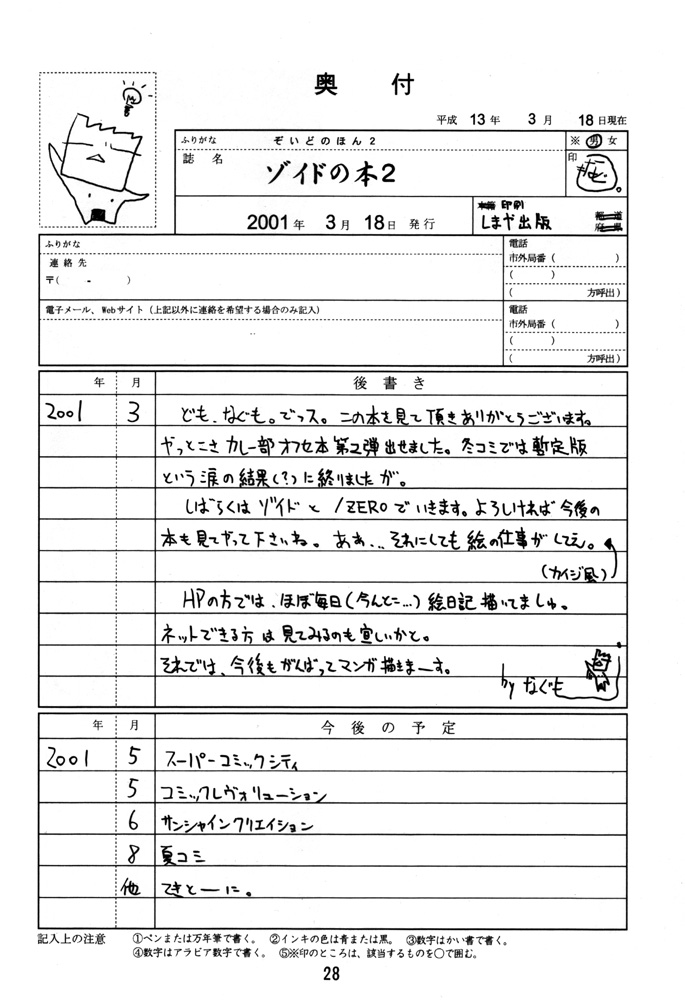 奥 付
平成 13年 3月 18日現在
ふりがな ぞいどのほん2
※ 男 女
誌 名 ゾイドの本2
印
2001年 3月 18日 発行
印刷
しまや出版
都 道
府 県
ふりがな
連 絡 先
〒( - )
電話
市外局番 ( )
( )
( 方呼出)
電子メール、Webサイト (上記以外に連絡を希望する場合のみ記入)
電話
市外局番 ( )
( )
( 方呼出)
年 月 後 書 き
2001 3 ども、なぐも。でっス。この本を見て頂きありがとうございます。
やっとこさ カレー部 オフセ本 第2弾 出せました。冬コミでは 暫定版
という 涙の結果(?)に終りましたが。
しばらくは ゾイド と /ZEROで いきます。よろしければ 今後の
本も見てやって下さいね。あぁ... それにしても 絵の仕事が してえ。
(カイジ風)
HPの方では、ほぼ毎日(今んとこ...)絵日記 描いてましゅ。
ネットできる方は 見てみるのも宜しいかと。
それでは、今後もがんばって マンガ 描きまーす。
by なぐも
年 月 今 後 の 予 定
2001 5 スーパーコミックシティ
5 コミックレヴォリューション
6 サンシャインクリエイション
8 夏コミ
他 てきとーに。
記入上の注意 ①ペンまたは万年筆で書く。 ②インキの色は青または黒。 ③数字はかい書で書く。
④数字はアラビア数字で書く。 ⑤※印のところは、該当するものを○で囲む。
28